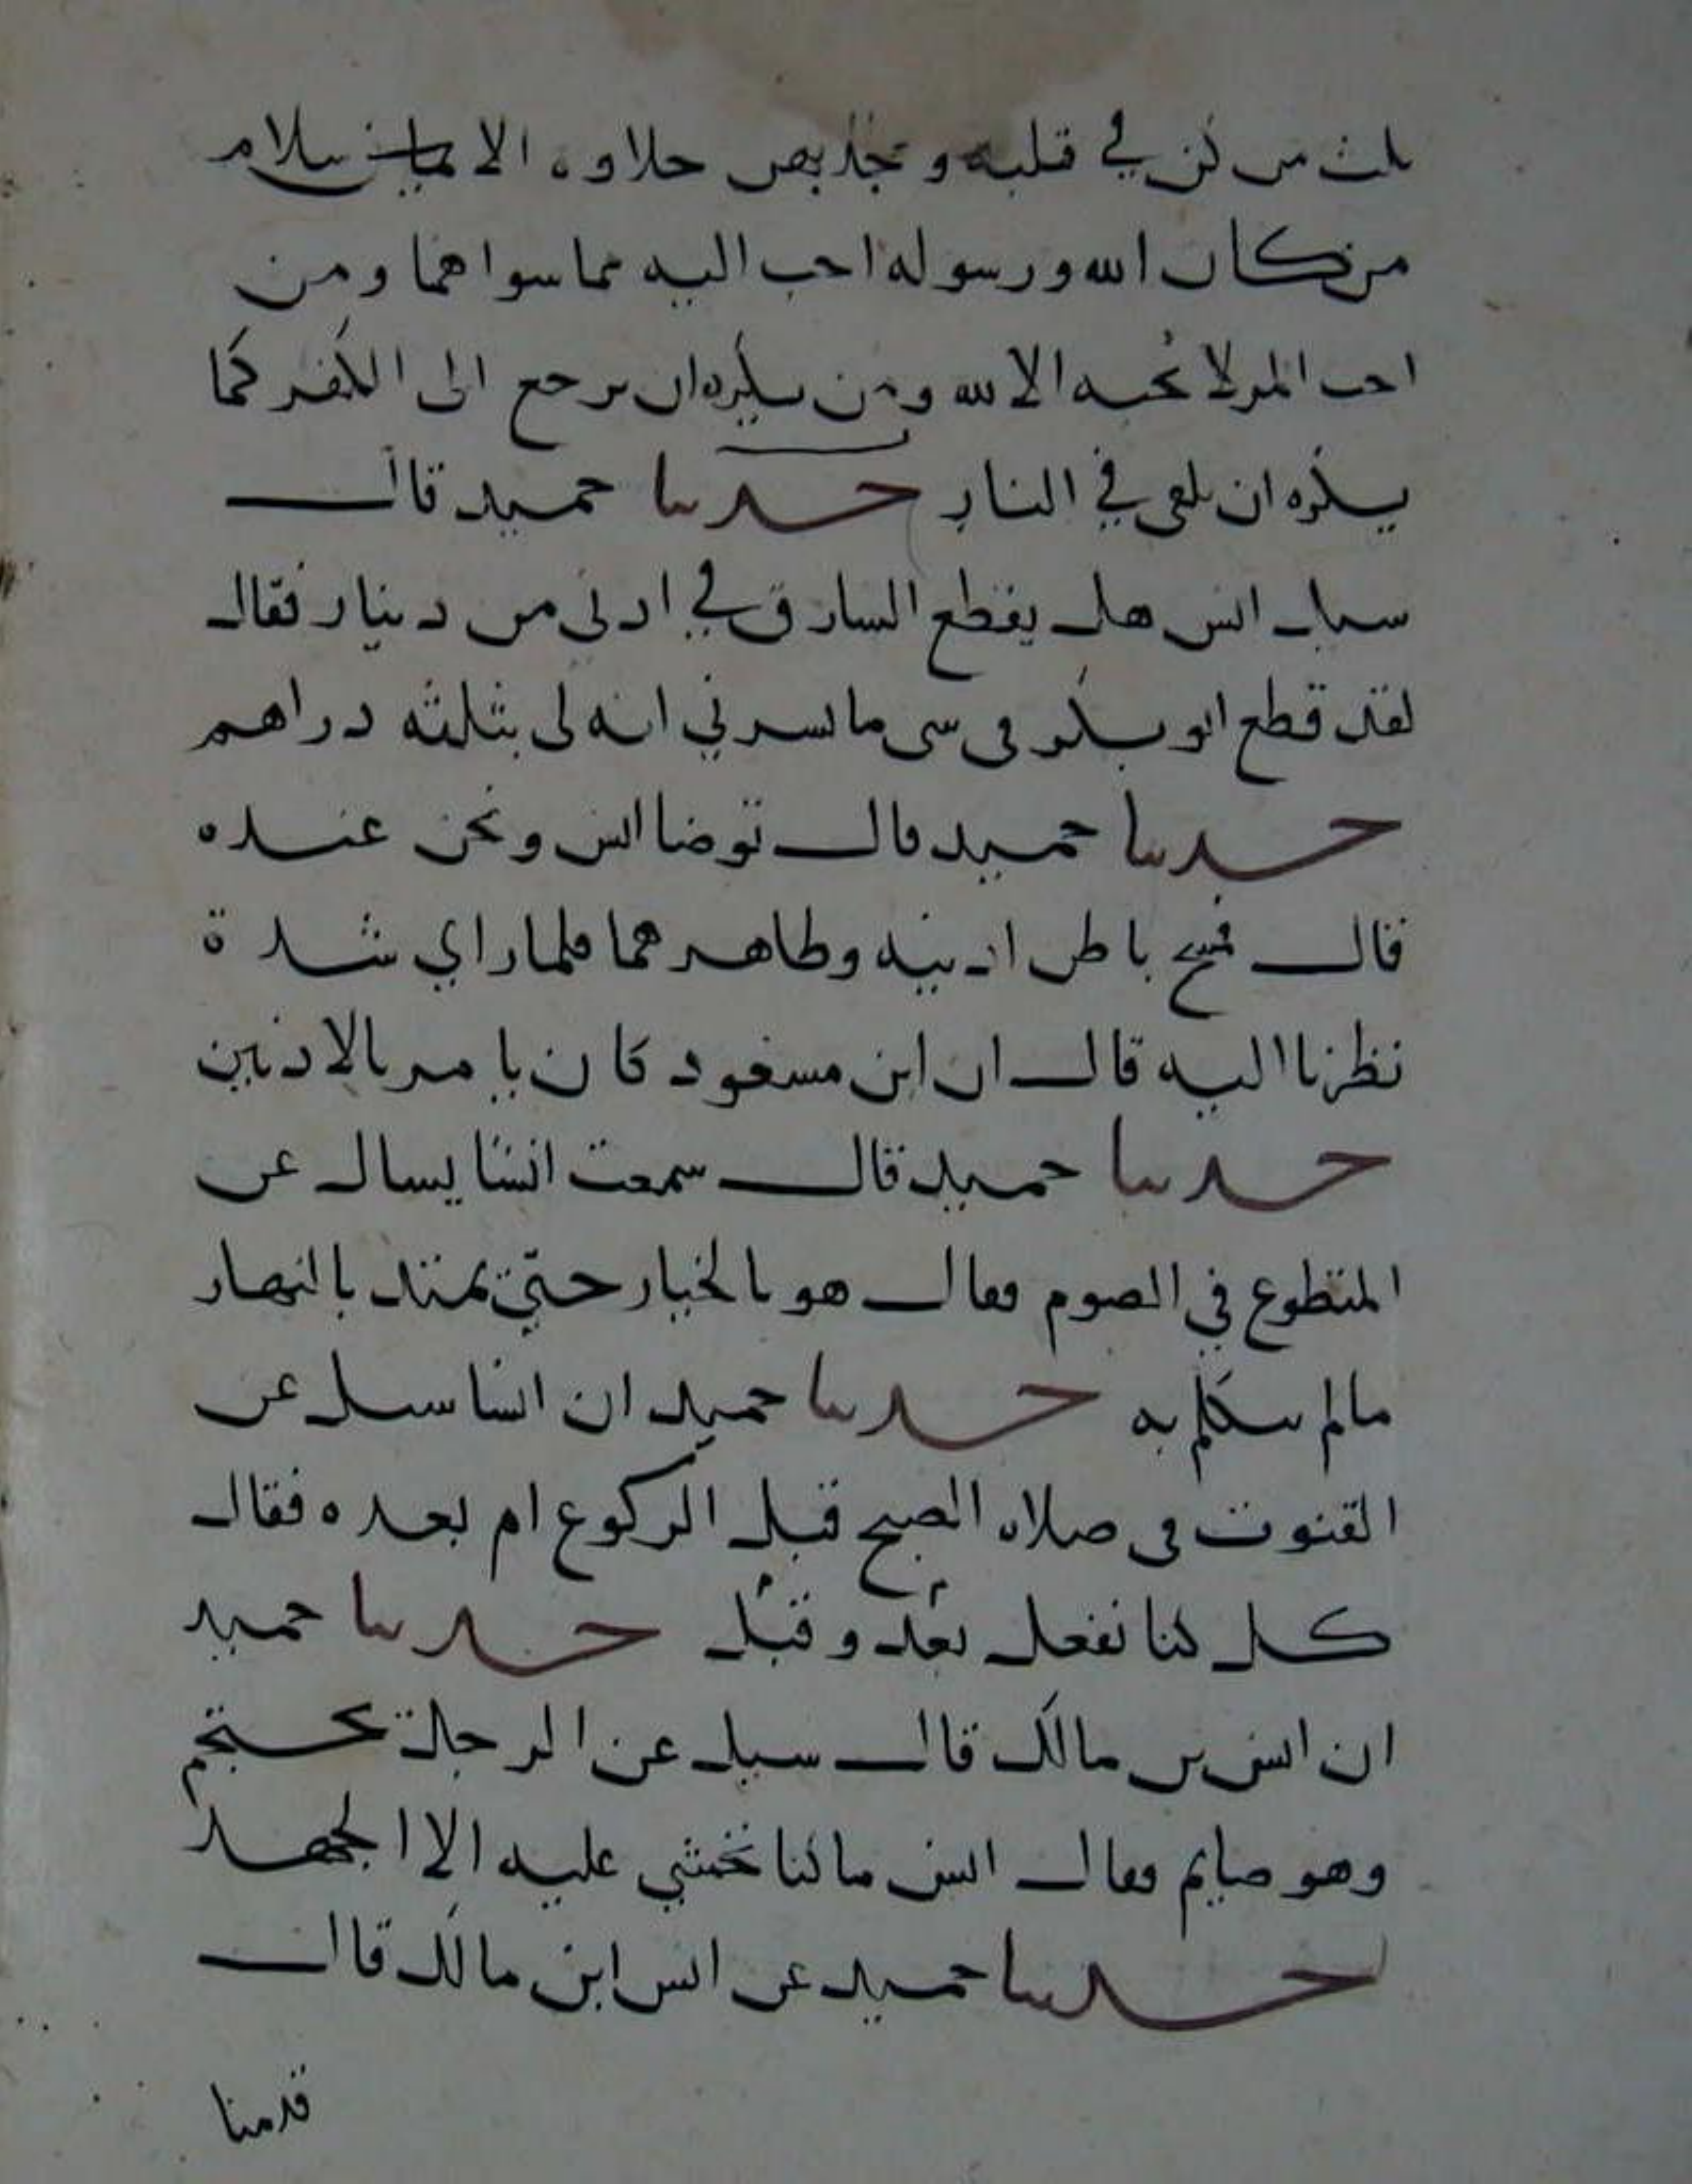 ثلث من كن في قلبه وجد بهن حلاوة الاسلام
من كان الله ورسوله احب اليه مما سواهما ومن
احب المرلا يحبه الا لله ومن يكره ان يرجع الى الكفر كما
يكره ان يلقى في النار حدثنا حميد قال
سيل انس هل يقطع السارق في ادنى من دينار فقال
لقد قطع ابو بكر في شي ما يسرني انه لي بثلثه دراهم
حدثنا حميد قال توضا انس ونحن عنده
قال فمسح باطن اذنيه وظاهرهما فلما راي شدة
نظرنا اليه قال ان ابن مسعود كان يامر بالاذنين
حدثنا حميد قال سمعت انسا يسال عن
المتطوع في الصوم فقال هو بالخيار حتى يمتد بالنهار
مالم يتكلم به حدثنا حميد ان انسا سيل عن
القنوت في صلاه الصبح قبل الركوع ام بعده فقال
كل كنا نفعل بعد وقبل حدثنا حميد
ان انس بن مالك قال سيل عن الرجل يحتجم
وهو صايم فقال انس ما كنا نخشي عليه الا الجهد
حدثنا حميد عن انس ابن مالك قال
قدمنا